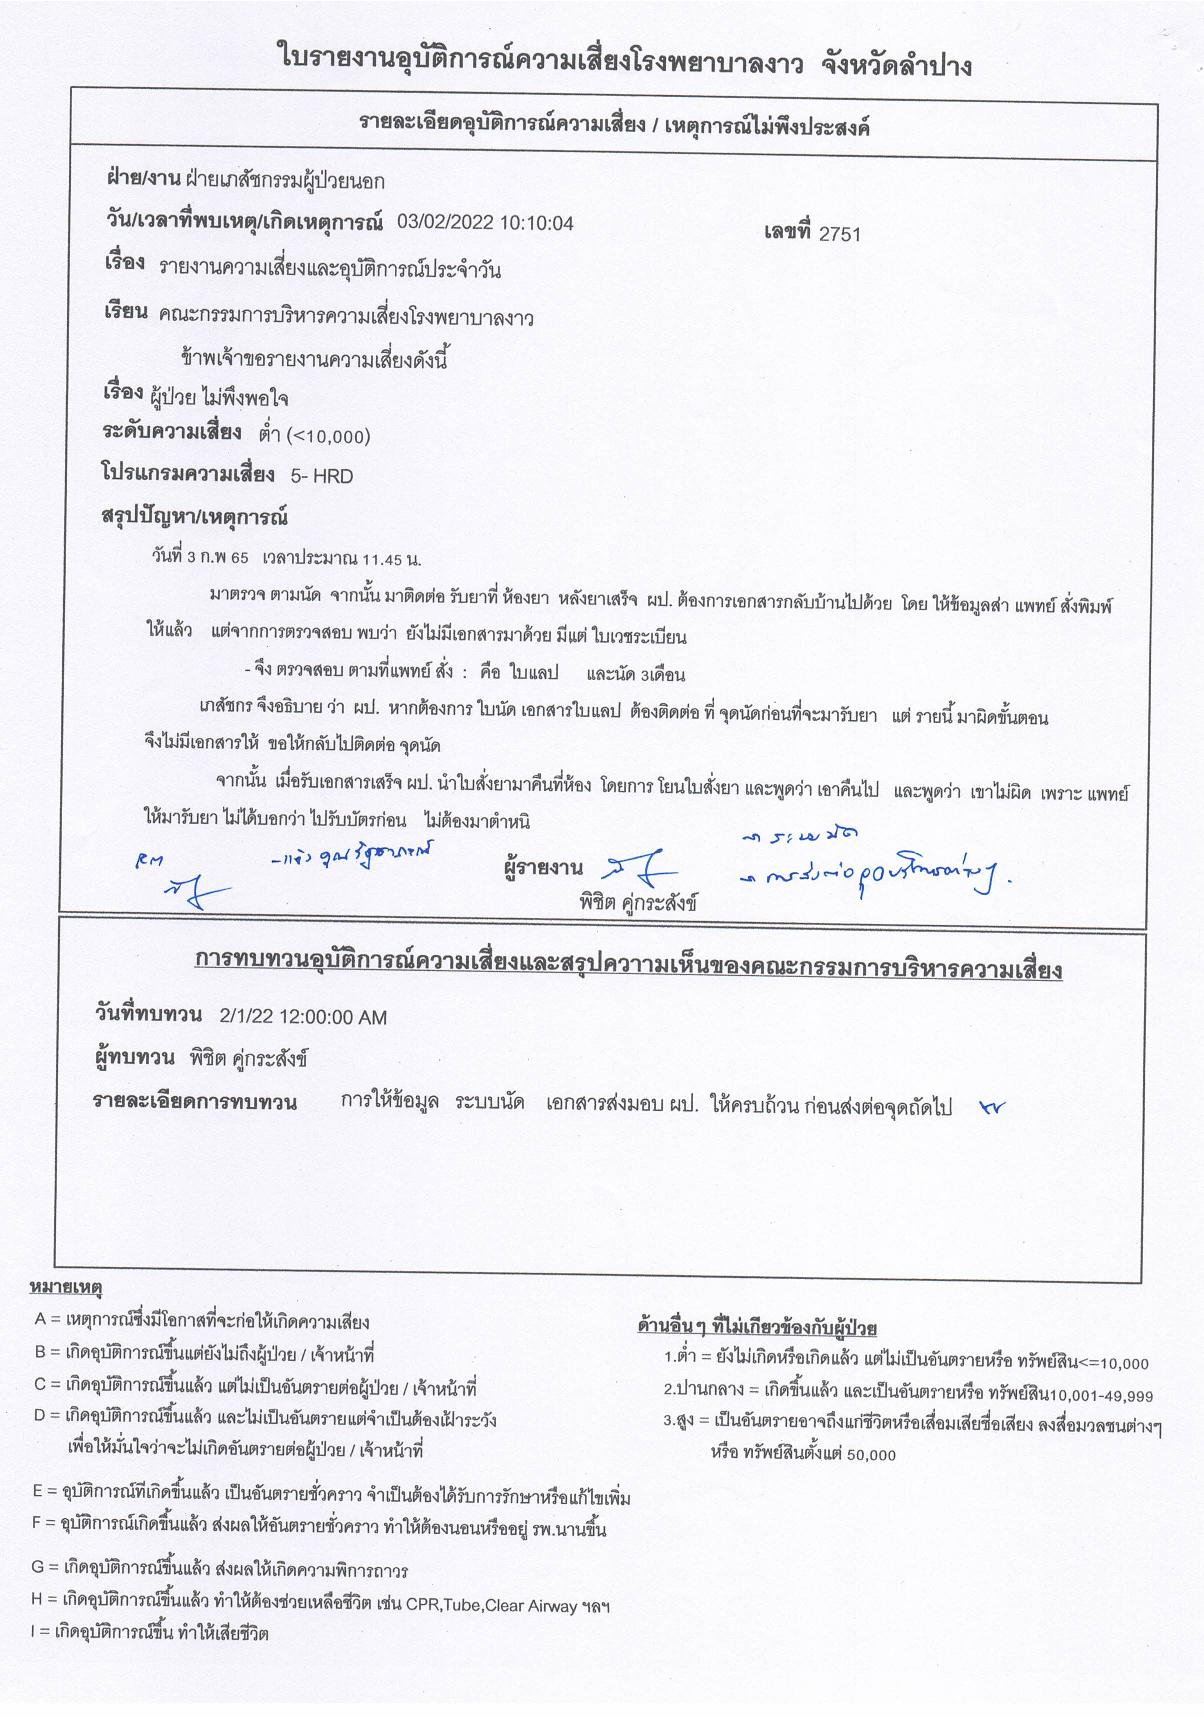 ใบรายงานอุบัติการณ์ความเสี่ยงโรงพยาบาลงาว จังหวัดลำปาง
รายละเอียดอุบัติการณ์ความเสี่ยง / เหตุการณ์ไม่พึงประสงค์
ฝ่าย/งาน ฝ่ายเภสัชกรรมผู้ป่วยนอก
วัน/เวลาที่พบเหตุ/เกิดเหตุการณ์ 03/02/2022 10:10:04 เลขที่ 2751
เรื่อง รายงานความเสี่ยงและอุบัติการณ์ประจำวัน
เรียน คณะกรรมการบริหารความเสี่ยงโรงพยาบาลงาว
ข้าพเจ้าขอรายงานความเสี่ยงดังนี้
เรื่อง ผู้ป่วย ไม่พึงพอใจ
ระดับความเสี่ยง ต่ำ (<10,000)
โปรแกรมความเสี่ยง 5- HRD
สรุปปัญหา/เหตุการณ์
วันที่ 3 ก.พ 65 เวลาประมาณ 11.45 น.
มาตรวจ ตามนัด จากนั้น มาติดต่อ รับยาที่ ห้องยา หลังยาเสร็จ ผป. ต้องการเอกสารกลับบ้านไปด้วย โดย ให้ข้อมูลส่า แพทย์ สั่งพิมพ์
ให้แล้ว แต่จากการตรวจสอบ พบว่า ยังไม่มีเอกสารมาด้วย มีแต่ ใบเวชระเบียน
- จึง ตรวจสอบ ตามที่แพทย์ สั่ง : คือ ใบแลป และนัด 3เดือน
เภสัชกร จึงอธิบาย ว่า ผป. หากต้องการ ใบนัด เอกสารใบแลป ต้องติดต่อ ที่ จุดนัดก่อนที่จะมารับยา แต่ รายนี้ มาผิดขั้นตอน
จึงไม่มีเอกสารให้ ขอให้กลับไปติดต่อ จุดนัด
จากนั้น เมื่อรับเอกสารเสร็จ ผป. นำใบสั่งยามาคืนที่ห้อง โดยการ โยนใบสั่งยา และพูดว่า เอาคืนไป และพูดว่า เขาไม่ผิด เพราะ แพทย์
ให้มารับยา ไม่ได้บอกว่า ไปรับบัตรก่อน ไม่ต้องมาตำหนิ
→ ระบบนัด
RM
ผู้รายงาน
พิชิต คู่กระสังข์
การทบทวนอุบัติการณ์ความเสี่ยงและสรุปความาเห็นของคณะกรรมการบริหารความเสี่ยง
วันที่ทบทวน 2/1/22 12:00:00 AM
ผู้ทบทวน พิชิต คู่กระสังข์
รายละเอียดการทบทวน การให้ข้อมูล ระบบนัด เอกสารส่งมอบ ผป. ให้ครบถ้วน ก่อนส่งต่อจุดถัดไป
หมายเหตุ
A = เหตุการณ์ซึ่งมีโอกาสที่จะก่อให้เกิดความเสี่ยง
B = เกิดอุบัติการณ์ขึ้นแต่ยังไม่ถึงผู้ป่วย / เจ้าหน้าที่
C = เกิดอุบัติการณ์ขึ้นแล้ว แต่ไม่เป็นอันตรายต่อผู้ป่วย / เจ้าหน้าที่
D = เกิดอุบัติการณ์ขึ้นแล้ว และไม่เป็นอันตรายแต่จำเป็นต้องเฝ้าระวัง
เพื่อให้มั่นใจว่าจะไม่เกิดอันตรายต่อผู้ป่วย / เจ้าหน้าที่
E = อุบัติการณ์ที่เกิดขึ้นแล้ว เป็นอันตรายชั่วคราว จำเป็นต้องได้รับการรักษาหรือแก้ไขเพิ่ม
F = อุบัติการณ์เกิดขึ้นแล้ว ส่งผลให้อันตรายชั่วคราว ทำให้ต้องนอนหรืออยู่ รพ.นานขึ้น
G = เกิดอุบัติการณ์ขึ้นแล้ว ส่งผลให้เกิดความพิการถาวร
H = เกิดอุบัติการณ์ขึ้นแล้ว ทำให้ต้องช่วยเหลือชีวิต เช่น CPR,Tube,Clear Airway ฯลฯ
I = เกิดอุบัติการณ์ขึ้น ทำให้เสียชีวิต
ด้านอื่น ๆ ที่ไม่เกี่ยวข้องกับผู้ป่วย
1.ต่ำ = ยังไม่เกิดหรือเกิดแล้ว แต่ไม่เป็นอันตรายหรือ ทรัพย์สิน<=10,000
2.ปานกลาง = เกิดขึ้นแล้ว และเป็นอันตรายหรือ ทรัพย์สิน10,001-49,999
3.สูง = เป็นอันตรายอาจถึงแก่ชีวิตหรือเสื่อมเสียชื่อเสียง ลงสื่อมวลชนต่างๆ
หรือ ทรัพย์สินตั้งแต่ 50,000